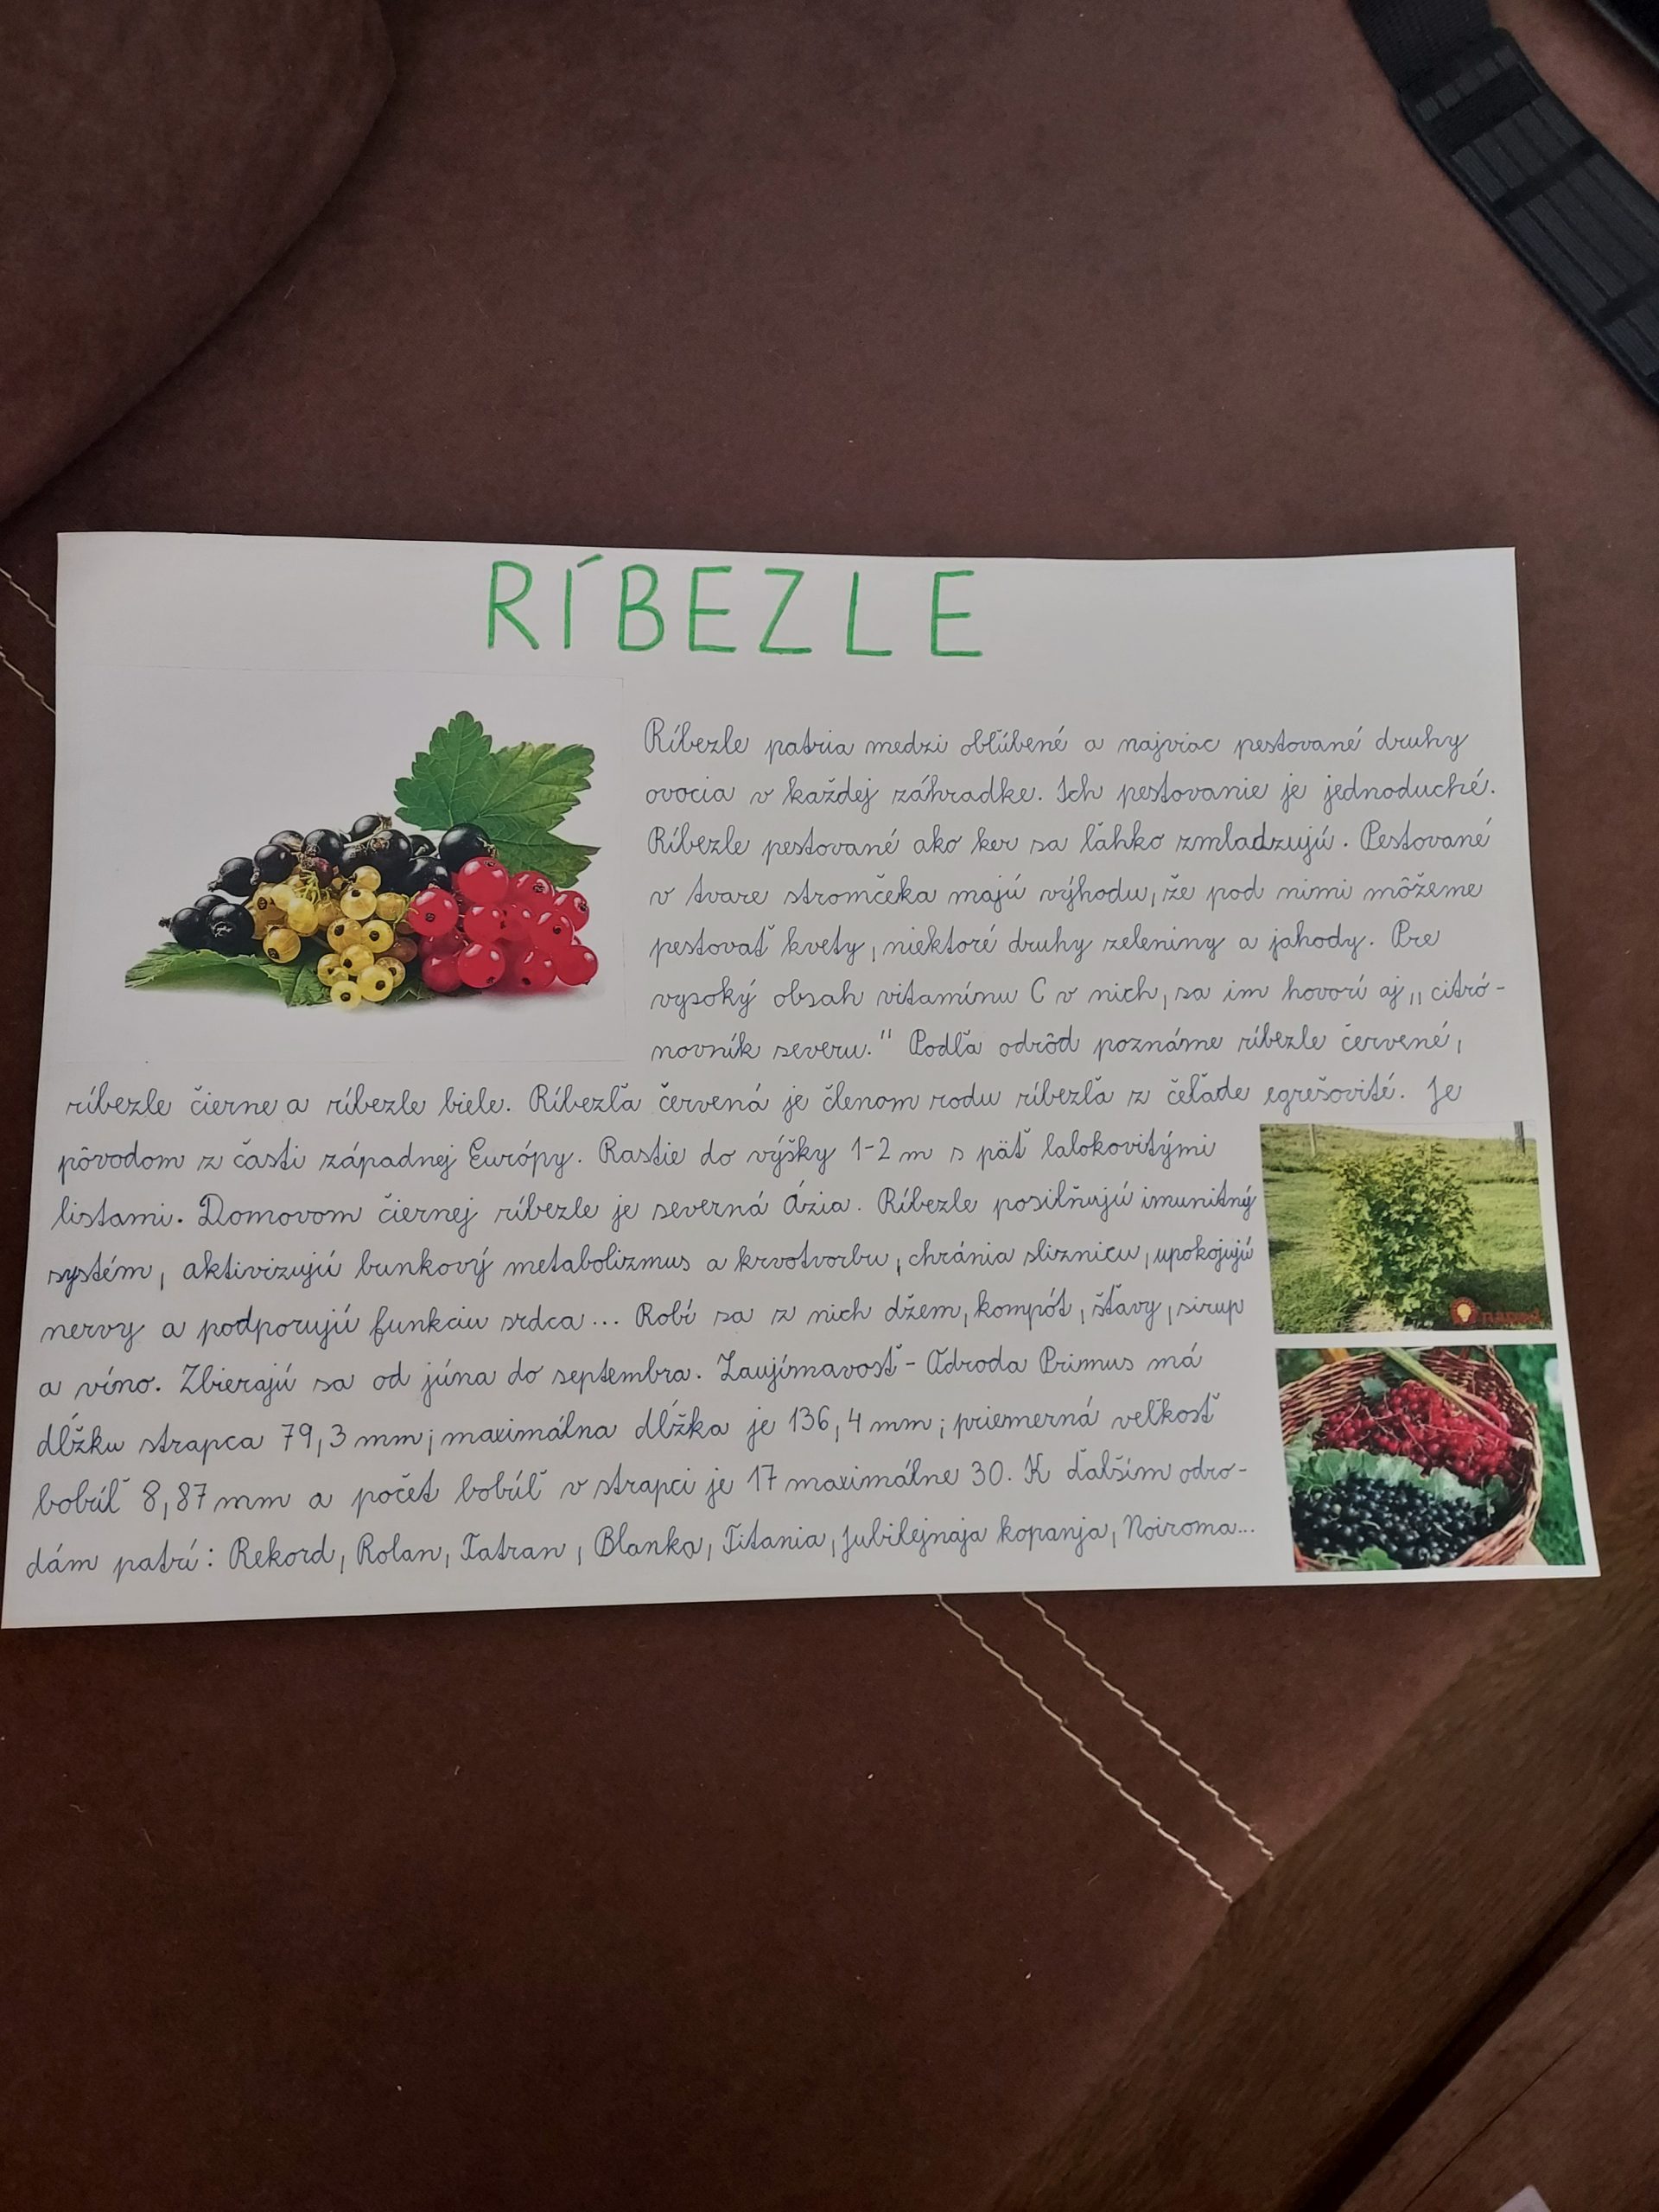 RÍBEZLE
Ríbezle patria medzi obľúbené a najviac pestované druhy
ovocia v každej záhradke. Ich pestovanie je jednoduché.
Ríbezle pestované ako ker sa ľahko zmladzujú. Pestované
v tvare stromčeka majú výhodu, že pod nimi môžeme
pestovať kvety, niektoré druhy zeleniny a jahody. Pre
vysoký obsah vitamínu C v nich, sa im hovorí aj „citró-
novník severu." Podľa odrôd poznáme ríbezle červené,
ríbezle čierne a ríbezle biele. Ríbezľa červená je členom rodu ríbezľa z čeľade egrešovité. Je
pôvodom z časti západnej Európy. Rastie do výšky 1-2 m s päť lalokovitými
listami. Domovom čiernej ríbezle je severná Ázia. Ríbezle posilňujú imunitný
systém, aktivizujú bunkový metabolizmus a krvotvorbu, chránia sliznicu, upokojujú
nervy a podporujú funkciu srdca... Robí sa z nich džem, kompót, šťavy, sirup
a víno. Zbierajú sa od júna do septembra. Zaujímavosť - Odroda Primus má
dĺžku strapca 79,3 mm; maximálna dĺžka je 136,4 mm; priemerná veľkosť
bobúľ 8,87 mm a počet bobúľ v strapci je 17 maximálne 30. K ďalším odro-
dám patrí: Rekord, Rolan, Tatran, Blanka, Titania, Jubilejnaja kopanja, Noiroma...